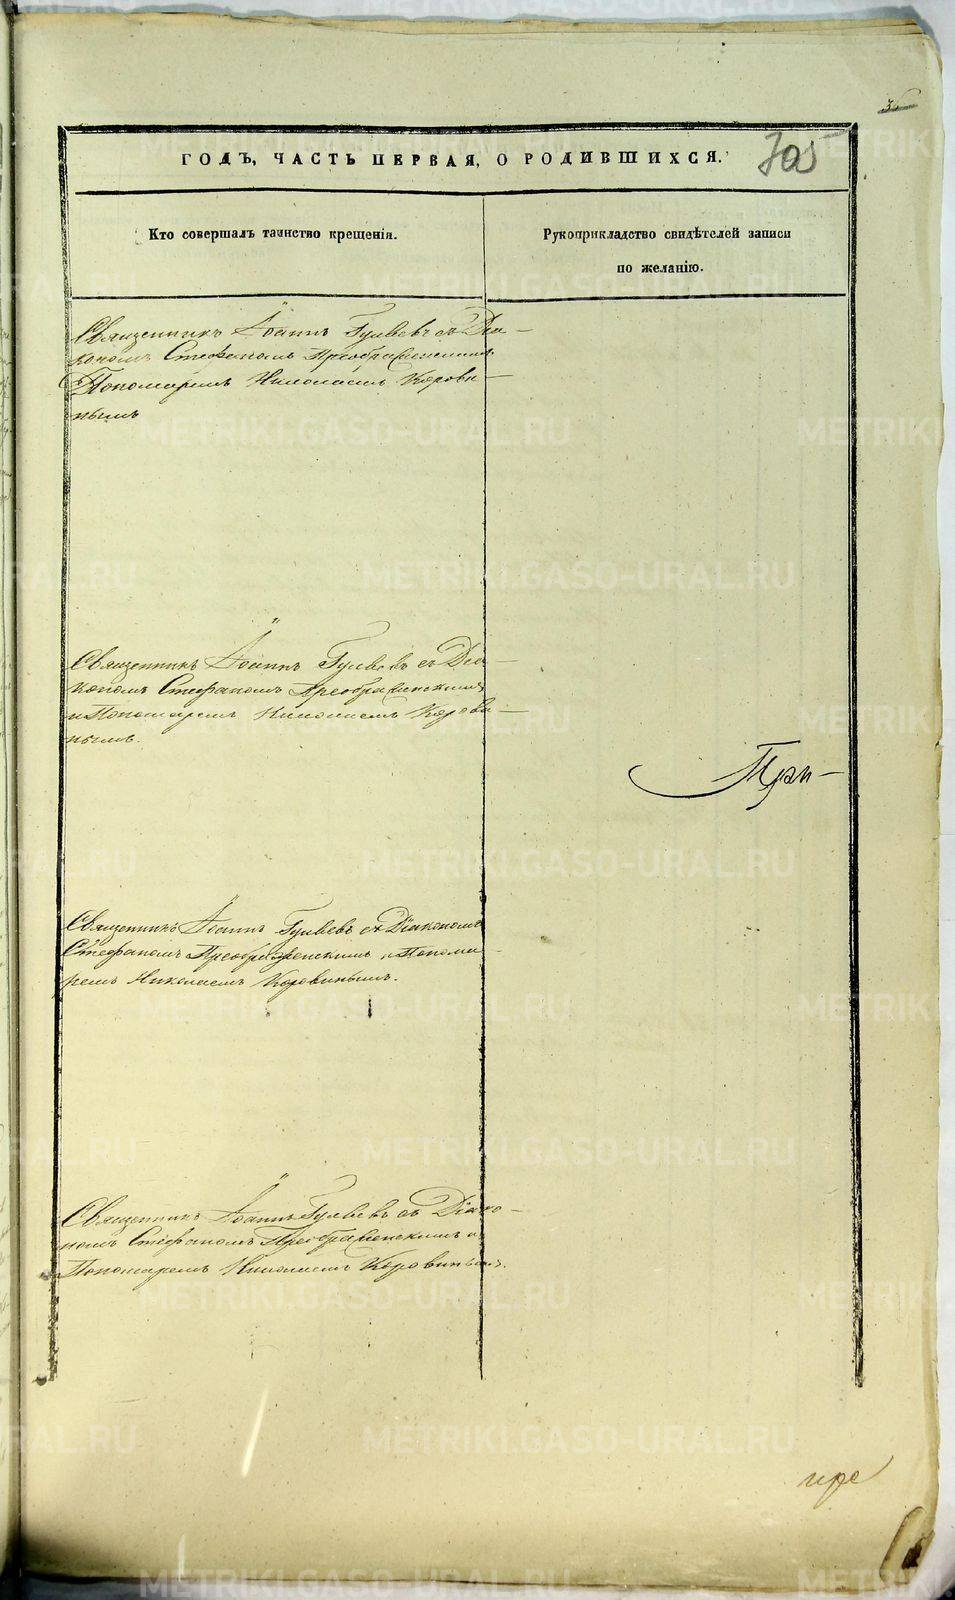 705
ГОДЪ, ЧАСТЬ ПЕРВАЯ, О РОДИВШИХСЯ.
Кто совершалъ таинство крещенія.
Рукоприкладство свидѣтелей записи
по желанію.
Священникъ Іоаннъ Гуляевъ съ Діа-
кономъ Стефаномъ Преображенскимъ
Пономаремъ Николаемъ Корови-
нымъ
Священникъ Іоаннъ Гуляевъ съ Діа-
кономъ Стефаномъ Преображенскимъ
и Пономаремъ Николаемъ Корови-
нымъ.
При-
Священникъ Іоаннъ Гуляевъ съ Діакономъ
Стефаномъ Преображенскимъ и Понома-
ремъ Николаемъ Коровинымъ.
Священникъ Іоаннъ Гуляевъ съ Діако-
номъ Стефаномъ Преображенскимъ и
Пономаремъ Николаемъ Коровинымъ.
METRIKI.GASO-URAL.RU